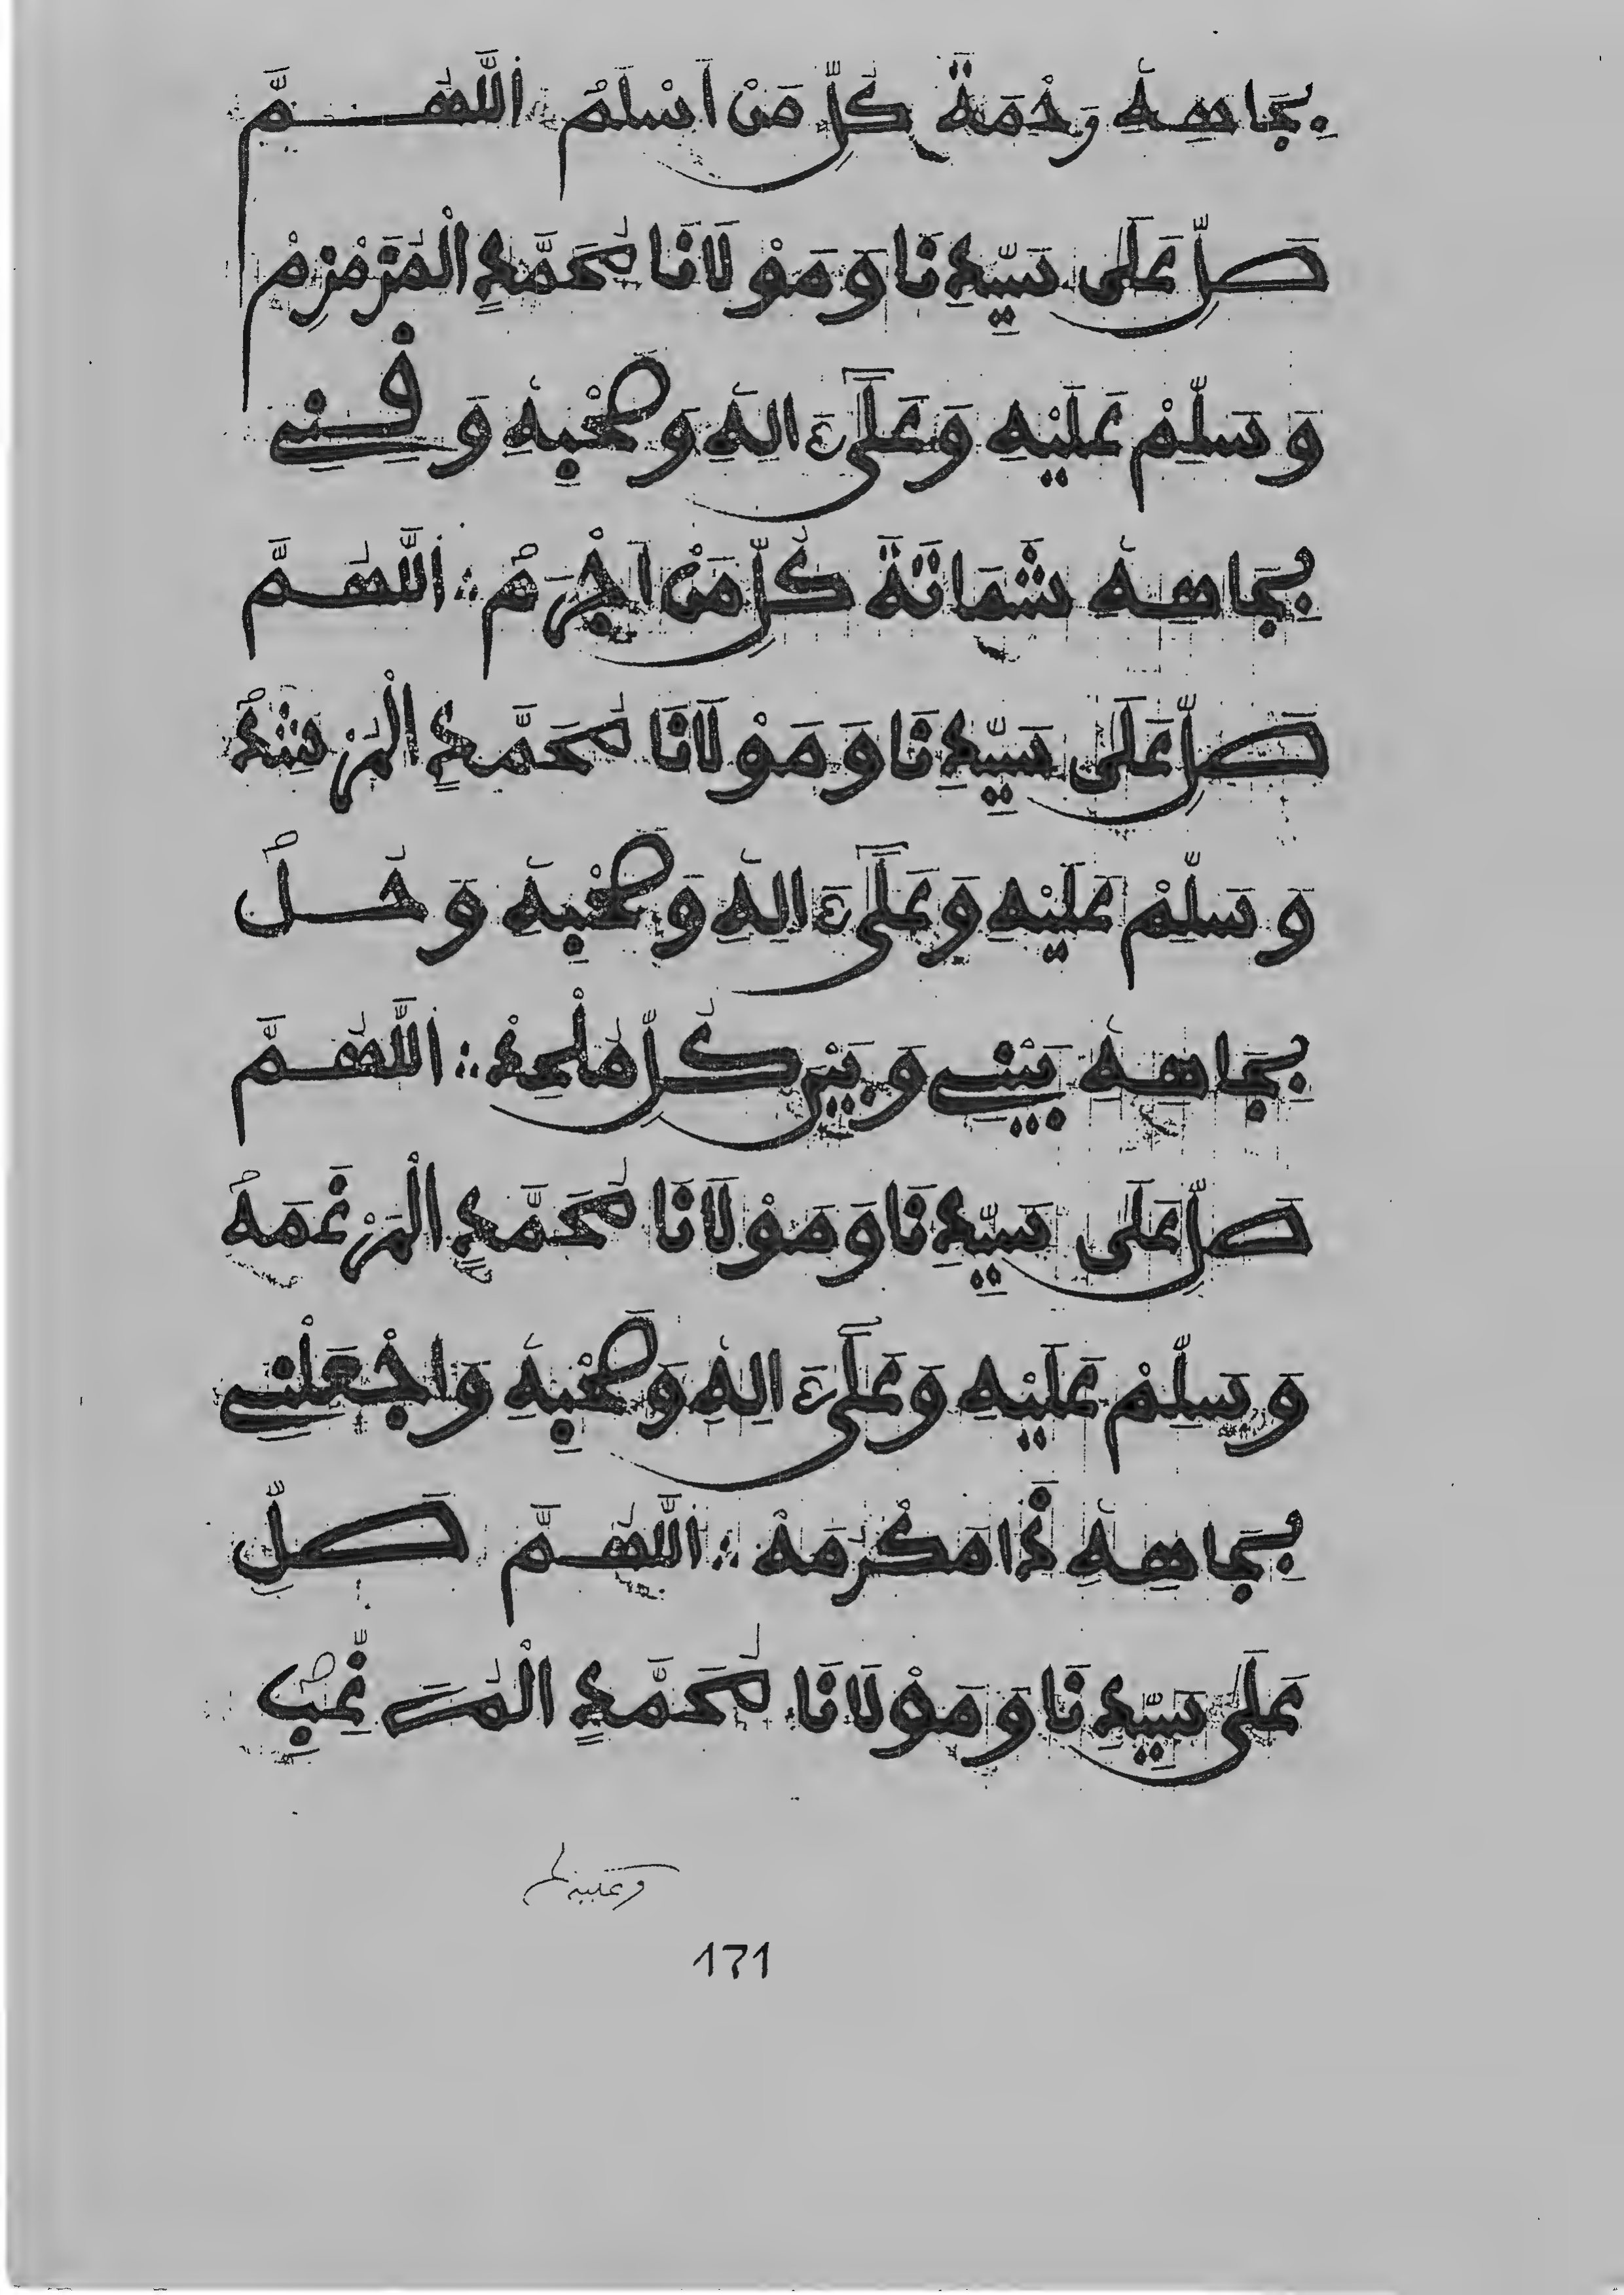 بِجَاهِهِ وَخْمَةَ كُلِّ مَنْ اَسْلَمُ اللَّهُمَّ
صَلِّ عَلَى سَيِّدِنَا وَمَوْلَانَا مُحَمَّدٍ الْمُزَمْزِمْ
وَسَلِّمْ عَلَيْهِ وَعَلَىٰ ءَالِهِ وَصَحْبِهِ وَقِنِي
بِجَاهِهِ شَمَاتَةَ كُلِّ مَنْ اَجْرَمُ ؞ اللَّهُمَّ
صَلِّ عَلَى سَيِّدِنَا وَمَوْلَانَا مُحَمَّدٍ الْمُرْشِدُ
وَسَلِّمْ عَلَيْهِ وَعَلَىٰ ءَالِهِ وَصَحْبِهِ وَحُلْ
بِجَاهِهِ بَيْنِي وَبَيْنَ كُلِّ مُلْحِدْ ؞ اللَّهُمَّ
صَلِّ عَلَى سَيِّدِنَا وَمَوْلَانَا مُحَمَّدٍ الْمَرْغَمَهْ
وَسَلِّمْ عَلَيْهِ وَعَلَىٰ ءَالِهِ وَصَحْبِهِ وَاجْعَلْنِي
بِجَاهِهِ ذَا مَكْرُمَهْ ؞ اللَّهُمَّ صَلِّ
عَلَى سَيِّدِنَا وَمَوْلَانَا مُحَمَّدٍ الْمُرَغِّبِ
171